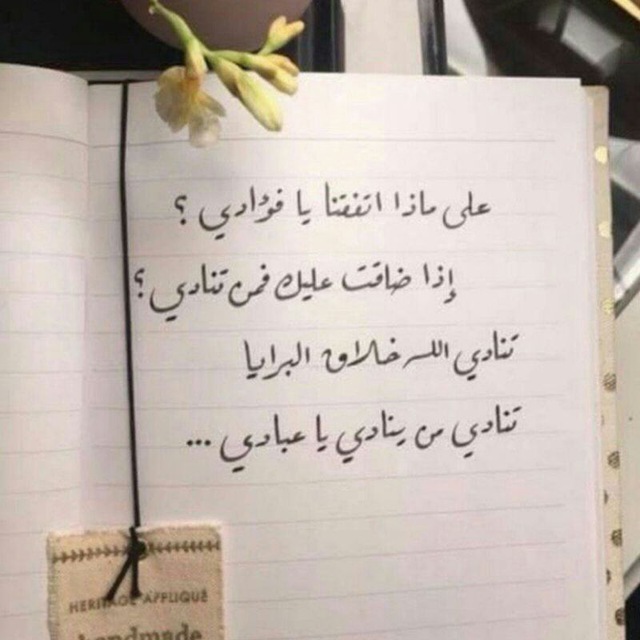 على ماذا اتفقنا يا فؤادي ؟
إذا ضاقت عليك فمن تنادي ؟
تنادي الله خلاق البرايا
تنادي من ينادي يا عبادي ...
HERITAGE APPLIQUÉ
handmade